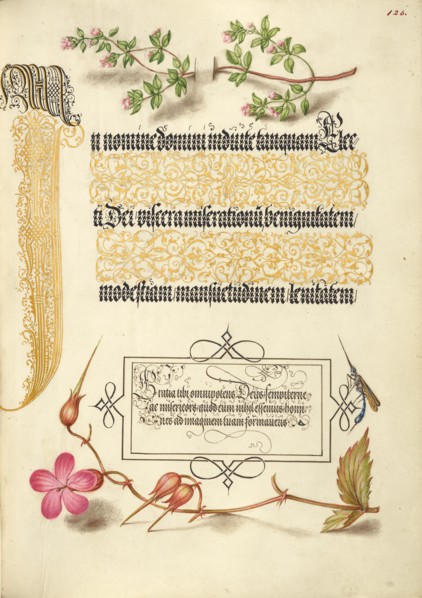 126.
In nomine domini induite tanquam Elec
ti Dei viscera miserationū benignitatem
modestiam mansuetudinem lenitatem
tibi omnipotens Deus sempiterne
ac misericors quod cum nihil essemus homi
nes ad imaginem tuam formaueris